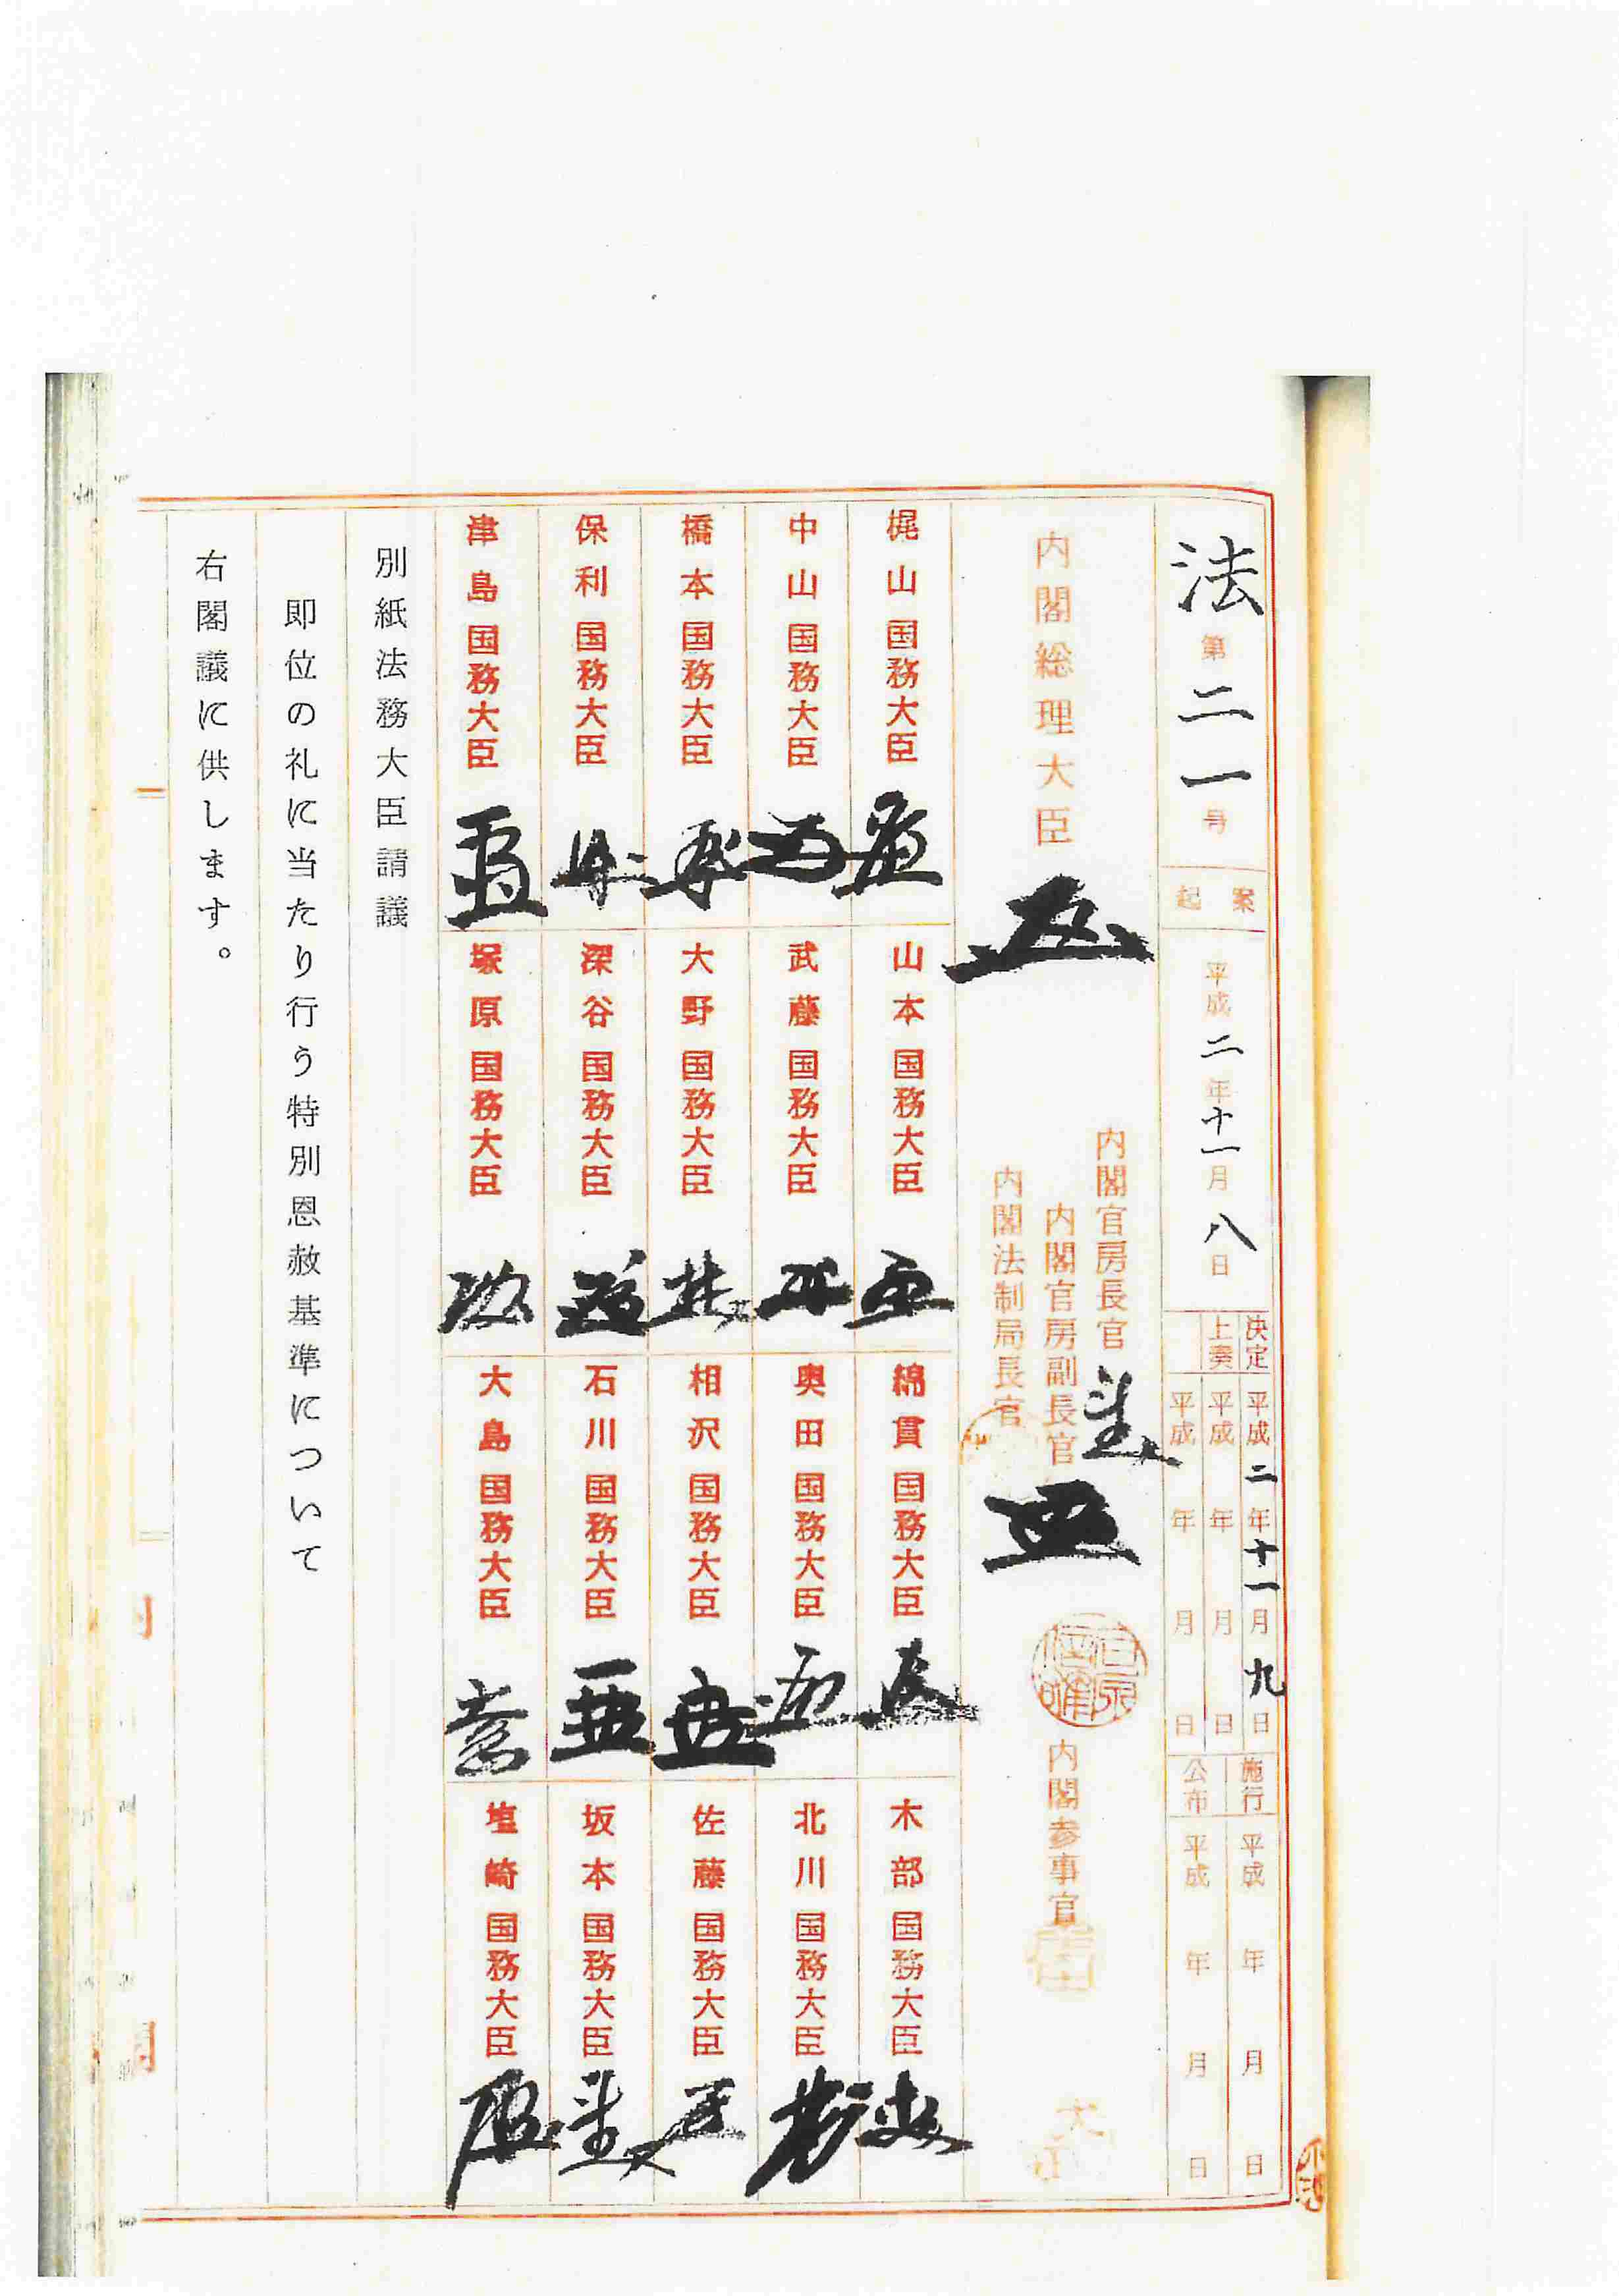 法第二一号
起案
平成二年十一月八日
決定
平成二年十一月九日
上奏
平成年月日
平成年月日
施行
平成年月日
公布
平成年月日
内閣総理大臣
内閣官房長官
内閣官房副長官
内閣法制局長官
内閣参事官
梶山国務大臣
山本国務大臣
綿貫国務大臣
木部国務大臣
中山国務大臣
武藤国務大臣
奥田国務大臣
北川国務大臣
橋本国務大臣
大野国務大臣
相沢国務大臣
佐藤国務大臣
保利国務大臣
深谷国務大臣
石川国務大臣
坂本国務大臣
津島国務大臣
塚原国務大臣
大島国務大臣
塩崎国務大臣
別紙法務大臣請議
即位の礼に当たり行う特別恩赦基準について
右閣議に供します。